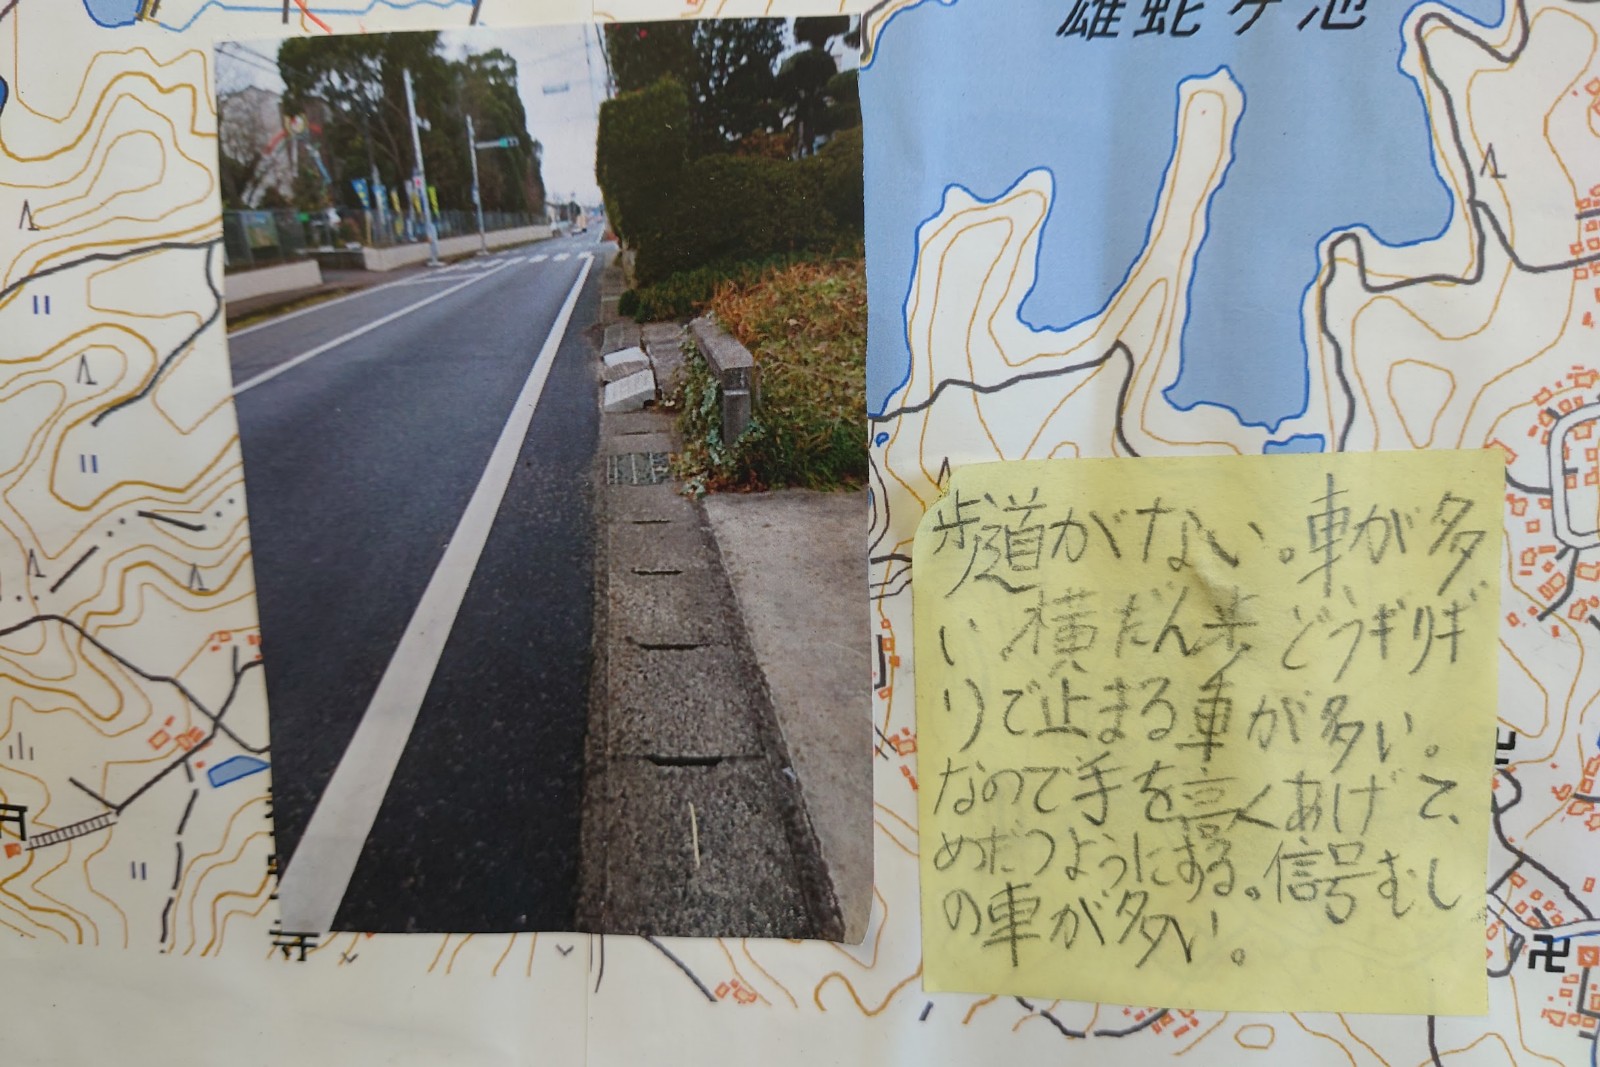 雄蛇ヶ池
歩道がない。車が多
い。横だん歩どうギリギ
リで止まる車が多い。
なので手を高くあげて、
めだつようにする。信号むし
の車が多い。